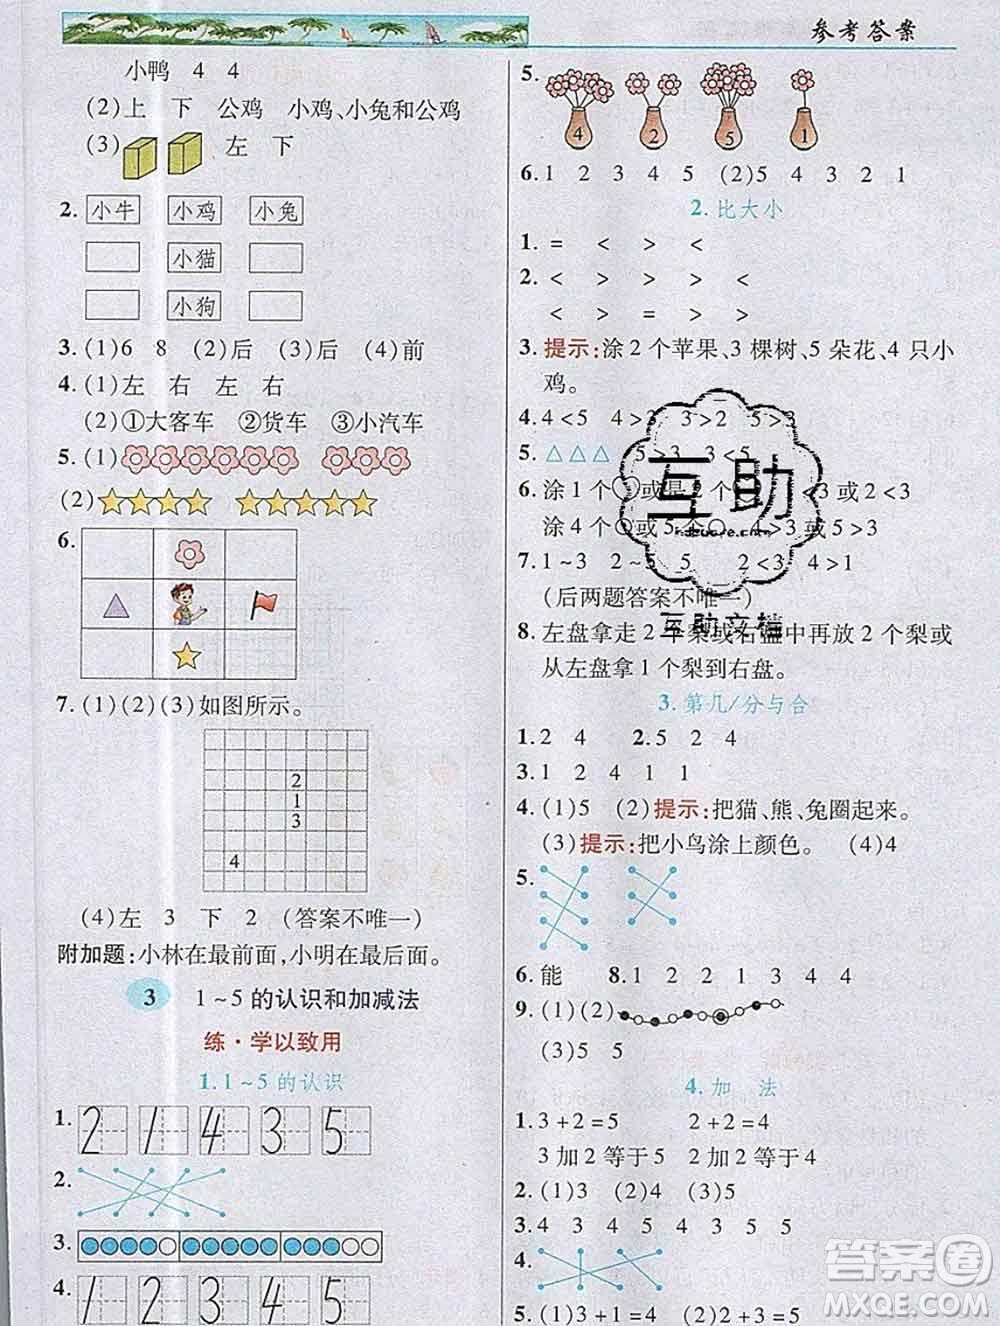 参考答案
小鸭 4 4
(2)上 下 公鸡 小鸡、小兔和公鸡
(3) 左 下
2. 小牛 小鸡 小兔
小猫
小狗
3. (1)6 8 (2)后 (3)后 (4)前
4. (1)左 右 左 右
(2)①大客车 ②货车 ③小汽车
5. (1)
(2)
6.
7. (1)(2)(3)如图所示。
2
1
3
4
(4)左 3 下 2 (答案不唯一)
附加题:小林在最前面,小明在最后面。
3 1~5的认识和加减法
练·学以致用
1.1~5的认识
1. 2 1 4 3 5
2.
3.
4. 1 2 3 4 5
5. 4 2 5 1
6. 1 2 3 4 5 (2)5 4 3 2 1
2.比大小
1. = < > <
2. < > < > <
< > = > >
3. 提示:涂2个苹果、3棵树、5朵花、4只小
鸡。
4. 4<5 4>3 3>2 5>3
5. △△△ 5>3 3<5
6. 涂1个○或是2个○ <3或2<3
涂4个○或5个○ 4>3或5>3
7. 1~3 2~5 5 2<3 4>1
(后两题答案不唯一)
8. 左盘拿走2个梨或右盘中再放2个梨或
从左盘拿1个梨到右盘。
3.第几/分与合
1. 2 4 2. 5 2 4
3. 1 2 4 1 1
4. (1)5 (2)提示:把猫、熊、兔圈起来。
(3)提示:把小鸟涂上颜色。 (4)4
5.
6. 能 8. 1 2 2 1 3 4 4
9. (1)(2)
(3)5 5
4.加 法
1. 3+2=5 2+2=4
3加2等于5 2加2等于4
2. (1)3 (2)4 (3)5
3. 4 3 4 5 4 3 5 5
4.
5. (1)3+1=4 (2)2+3=5
互助
互助文档
答案圈
MXQE.COM